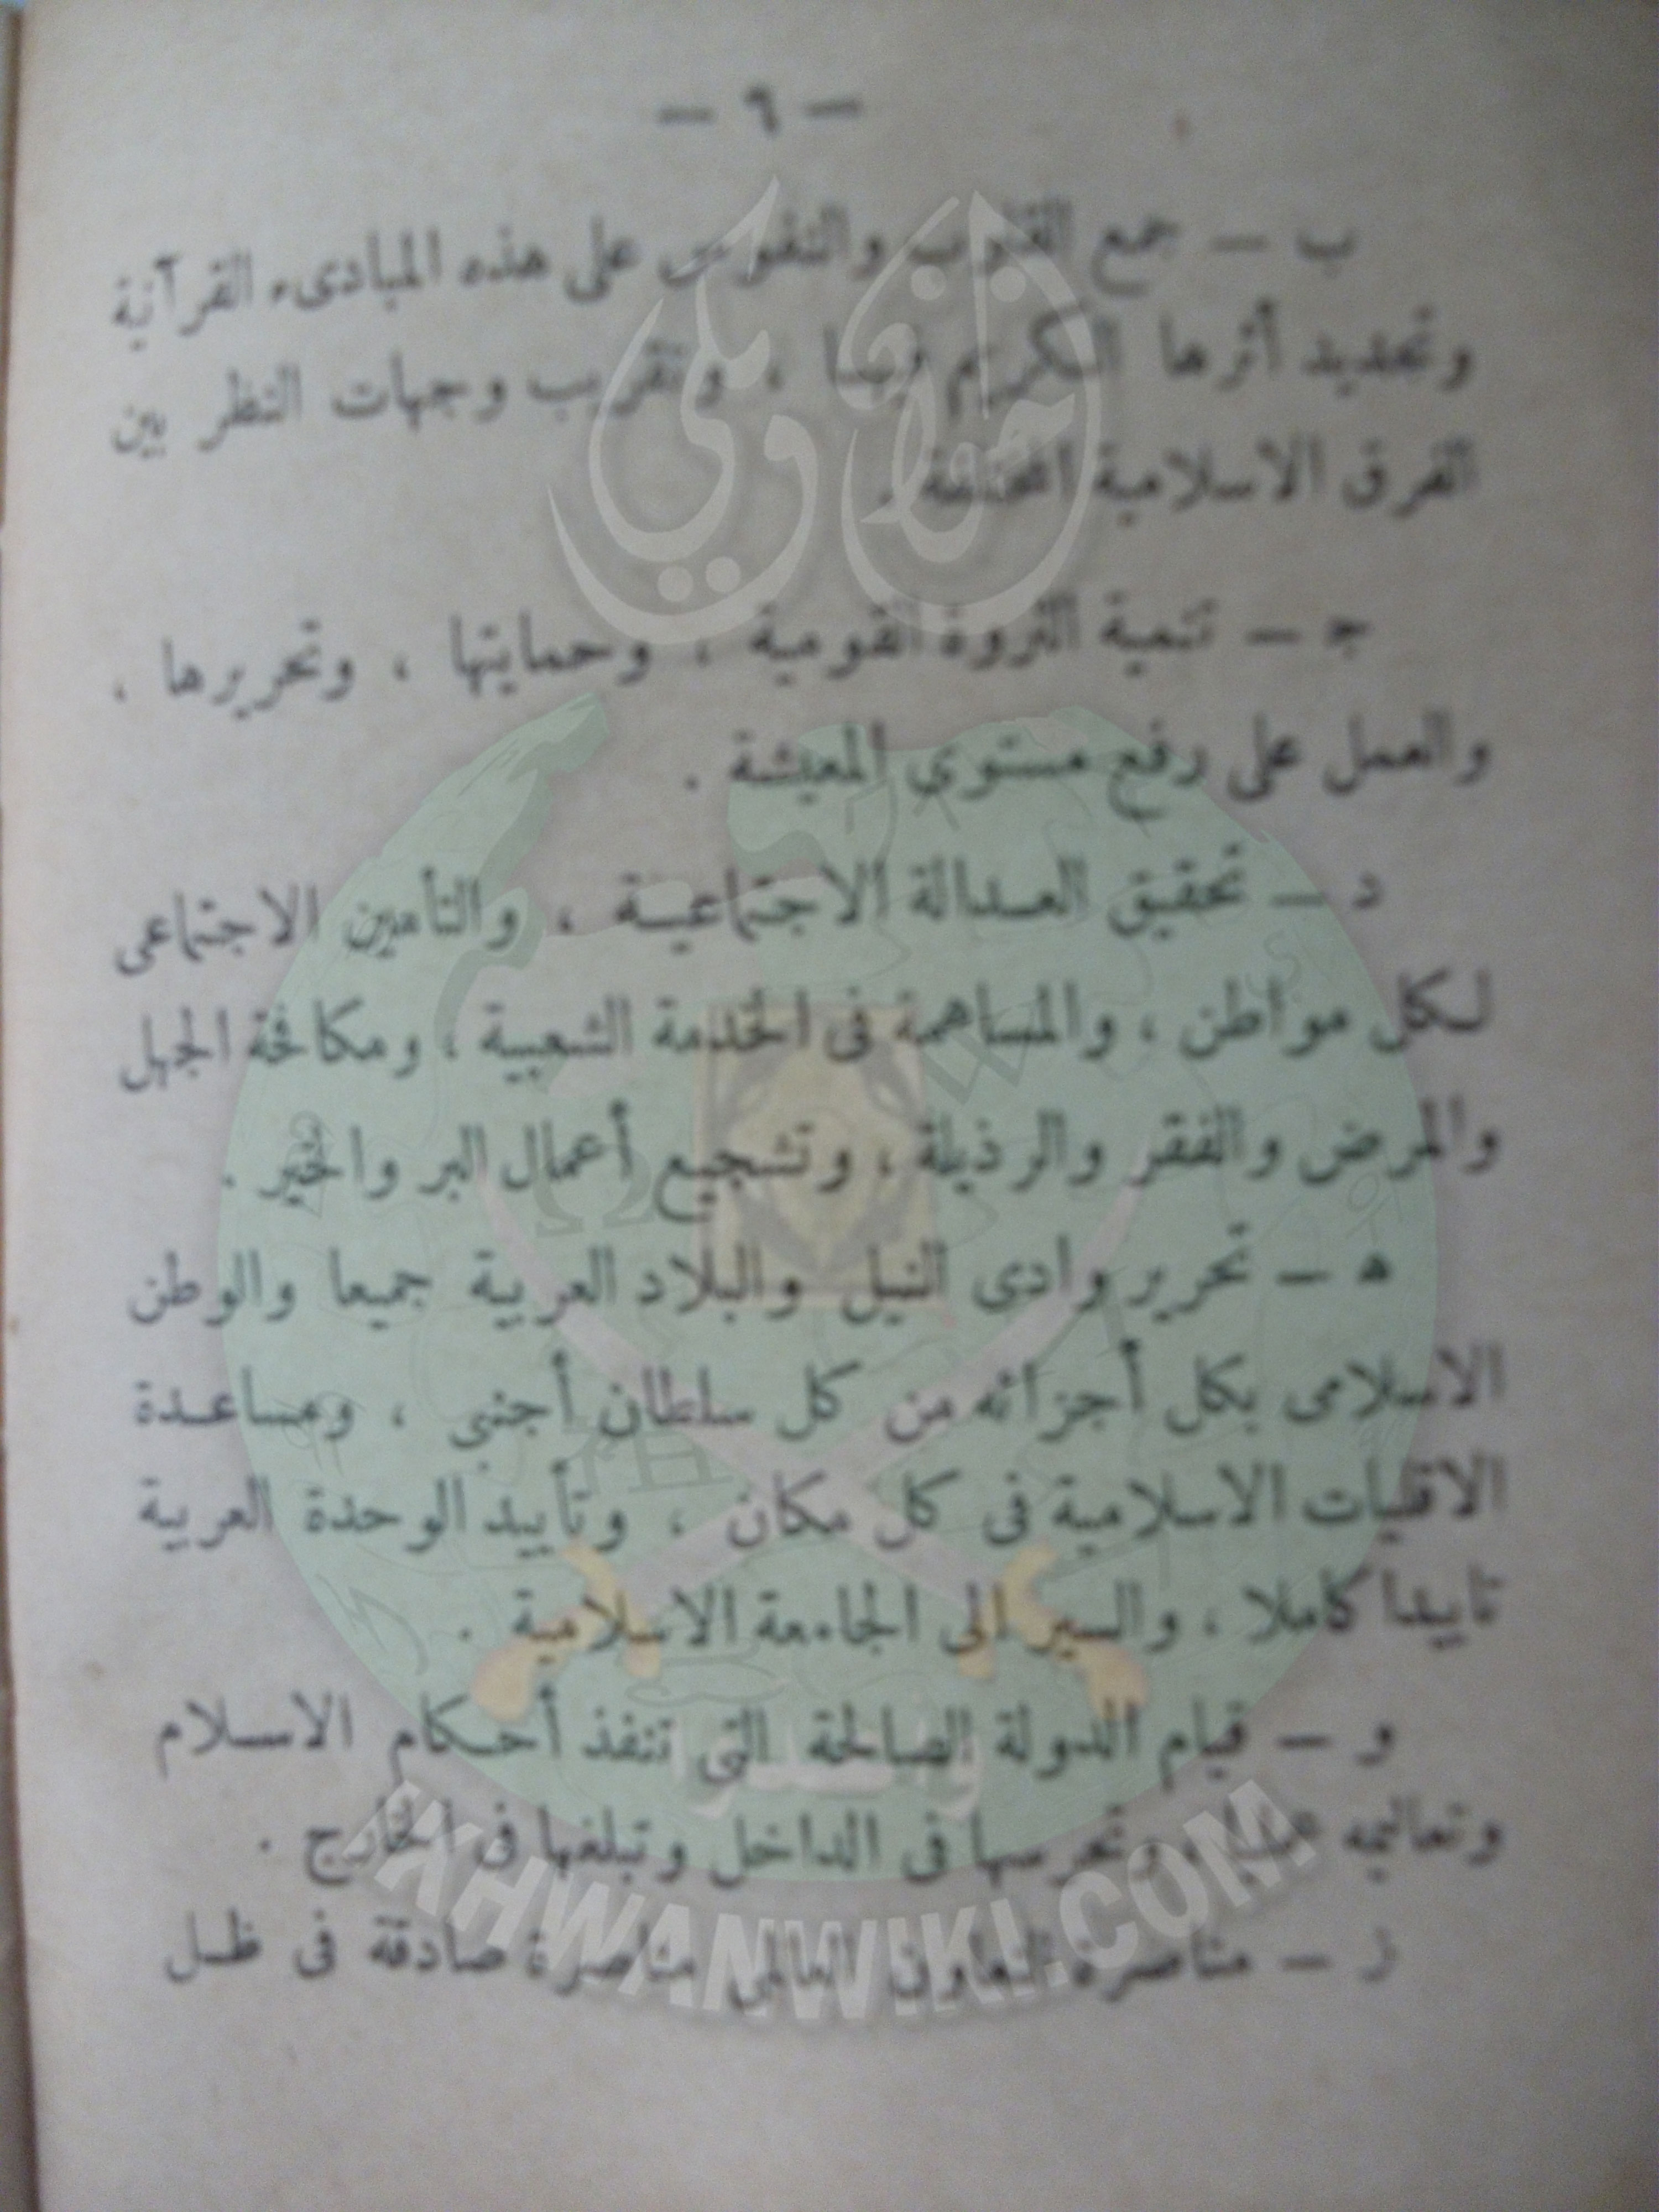 — ٦ —
ب — جمع القلوب والنفوس على هذه المبادىء القرآنية
وتجديد أثرها الكريم فيها ، وتقريب وجهات النظر بين
الفرق الاسلامية المختلفة .
ج — تنمية الثروة القومية ، وحمايتها ، وتحريرها ،
والعمل على رفع مستوى المعيشة .
د — تحقيق العدالة الاجتماعية ، والتأمين الاجتماعى
لكل مواطن ، والمساهمة فى الخدمة الشعبية ، ومكافحة الجهل
والمرض والفقر والرذيلة ، وتشجيع أعمال البر والخير .
ه — تحرير وادى النيل والبلاد العربية جميعا والوطن
الاسلامى بكل أجزائه من كل سلطان أجنبى ، ومساعدة
الاقليات الاسلامية فى كل مكان ، وتأييد الوحدة العربية
تاييدا كاملا ، والسير الى الجامعة الاسلامية .
و — قيام الدولة الصالحة التى تنفذ أحكام الاسلام
وتعاليمه عمليا ، وتحرسها فى الداخل وتبلغها فى الخارج .
ز — مناصرة التعاون العالمى مناصرة صادقة فى ظل
إخوان ويكي
وأعدوا
IKHWANWIKI.COM